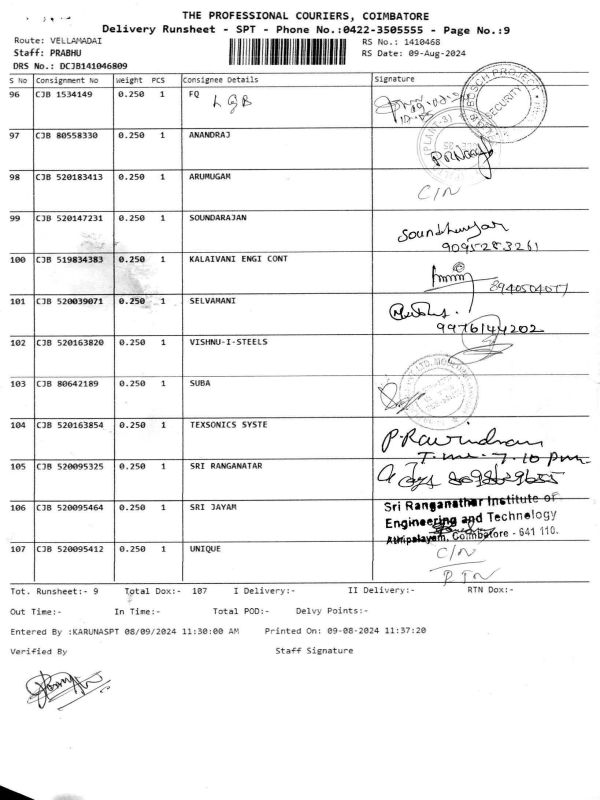 THE PROFESSIONAL COURIERS, COIMBATORE
Delivery Runsheet - SPT - Phone No.:0422-3505555 - Page No.:9
Route: VELLAMADAI RS No.: 1410468
Staff: PRABHU RS Date: 09-Aug-2024
DRS No.: DCJB141046809
S No Consignment No Weight PCS Consignee Details Signature
96 CJB 1534149 0.250 1 FQ
LGB
BOSCH PROJECT
SECURITY
97 CJB 80558330 0.250 1 ANANDRAJ
98 CJB 520183413 0.250 1 ARUMUGAM
C/N
99 CJB 520147231 0.250 1 SOUNDARAJAN
9095283261
100 CJB 519834383 0.250 1 KALAIVANI ENGI CONT
101 CJB 520039071 0.250 1 SELVAMANI
9976144202
102 CJB 520163820 0.250 1 VISHNU-I-STEELS
103 CJB 80642189 0.250 1 SUBA
104 CJB 520163854 0.250 1 TEXSONICS SYSTE
P. Ravindran
105 CJB 520095325 0.250 1 SRI RANGANATAR
106 CJB 520095464 0.250 1 SRI JAYAM
Sri Ranganathar Institute of
Engineering and Technology
Athipalayam, Coimbatore - 641 110.
107 CJB 520095412 0.250 1 UNIQUE
C/N
Tot. Runsheet:- 9 Total Dox:- 107 I Delivery:- II Delivery:- RTN Dox:-
Out Time:- In Time:- Total POD:- Delvy Points:-
Entered By :KARUNASPT 08/09/2024 11:30:00 AM Printed On: 09-08-2024 11:37:20
Verified By Staff Signature